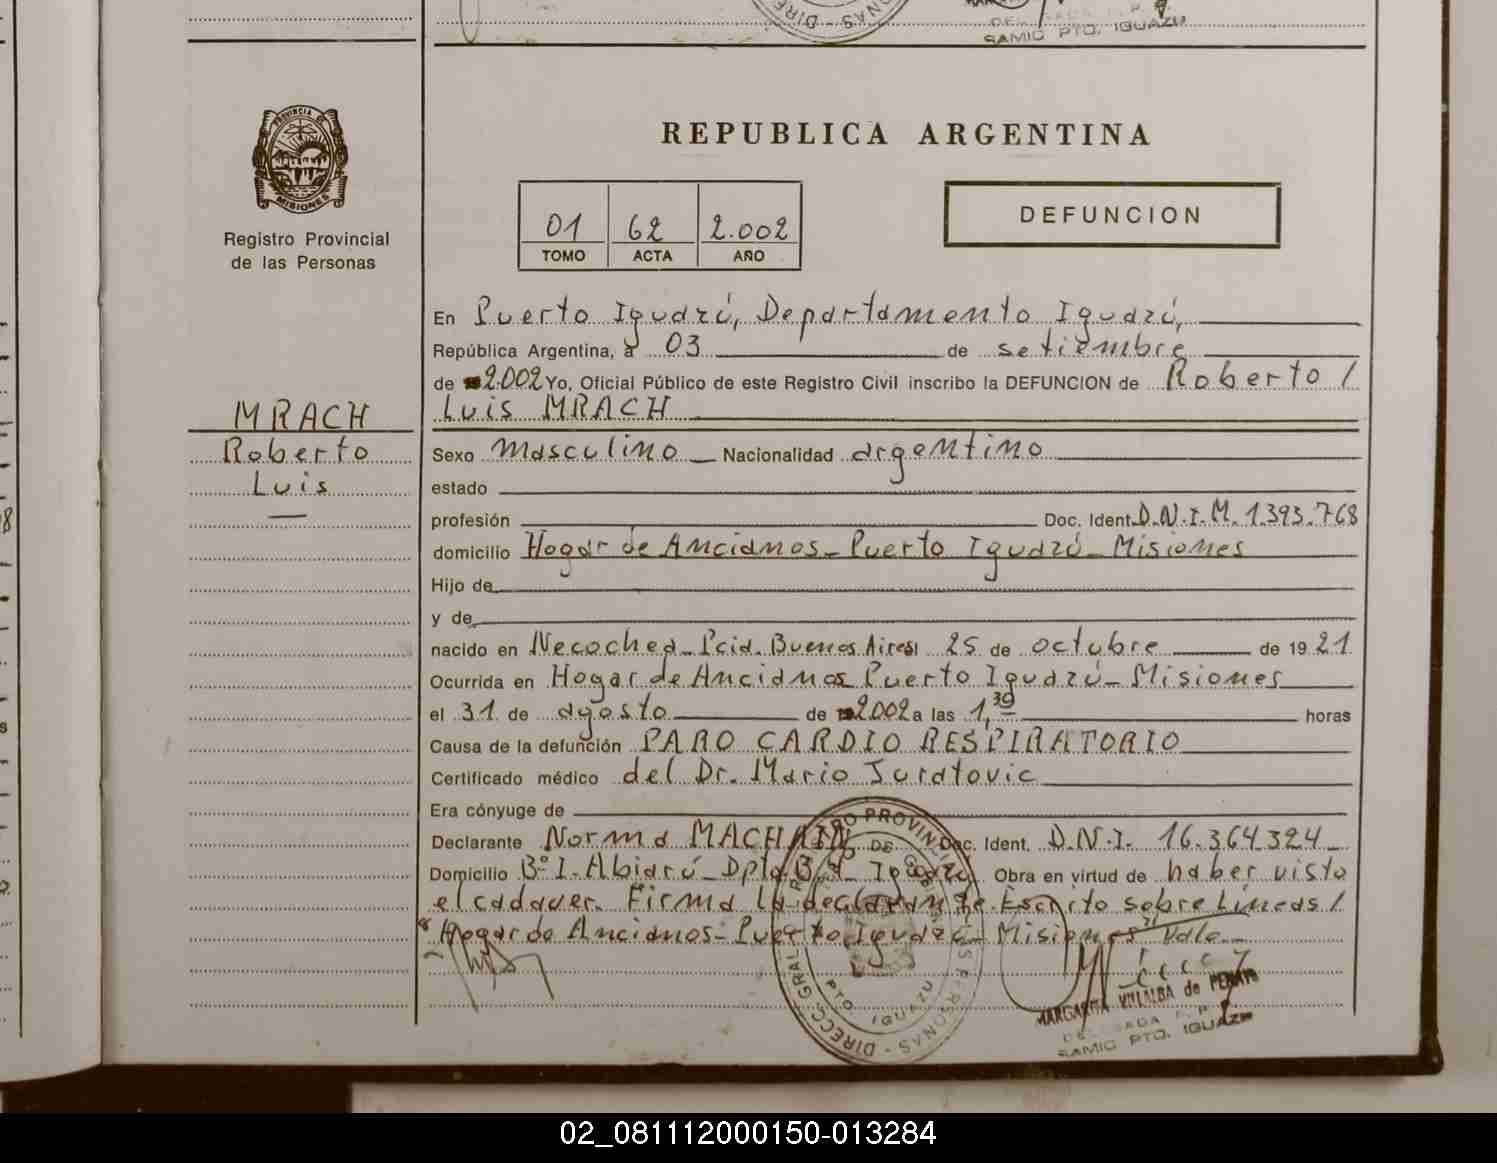 SAMIC PTO. IGUAZU
PROVINCIA DE
MISIONES
Registro Provincial
de las Personas
REPUBLICA ARGENTINA
01 62 2.002
TOMO ACTA AÑO
DEFUNCION
En Puerto Iguazú, Departamento Iguazú,
República Argentina, a 03 de setiembre
de 2.002 Yo, Oficial Público de este Registro Civil inscribo la DEFUNCION de Roberto /
Luis MRACH
MRACH
Roberto
Luis
Sexo masculino Nacionalidad argentino
estado
profesión Doc. Ident. D.N.I.M. 1.393.768
domicilio Hogar de Ancianos - Puerto Iguazú - Misiones
Hijo de
y de
nacido en Necochea - Pcia. Buenos Aires 25 de octubre de 1921
Ocurrida en Hogar de Ancianos Puerto Iguazú - Misiones
el 31 de agosto de 2002 a las 1,30 horas
Causa de la defunción PARO CARDIO RESPIRATORIO
Certificado médico del Dr. Mario Juratovic
Era cónyuge de
Declarante Norma MACHAIN Doc. Ident. D.N.I. 16.364.324
Domicilio Bº I. Albiarú - Dpto. Iguazú Obra en virtud de haber visto
el cadaver. Firma la declarante. Escrito sobre Líneas /
"Hogar de Ancianos - Puerto Iguazú - Misiones" Vale
DIRECC. GRAL. REGISTRO PROVINCIAL DE LAS PERSONAS
PTO IGUAZU
MARGARITA VILLALBA de
DELEGADA R. P. P.
SAMIC PTO. IGUAZU
02_081112000150-013284